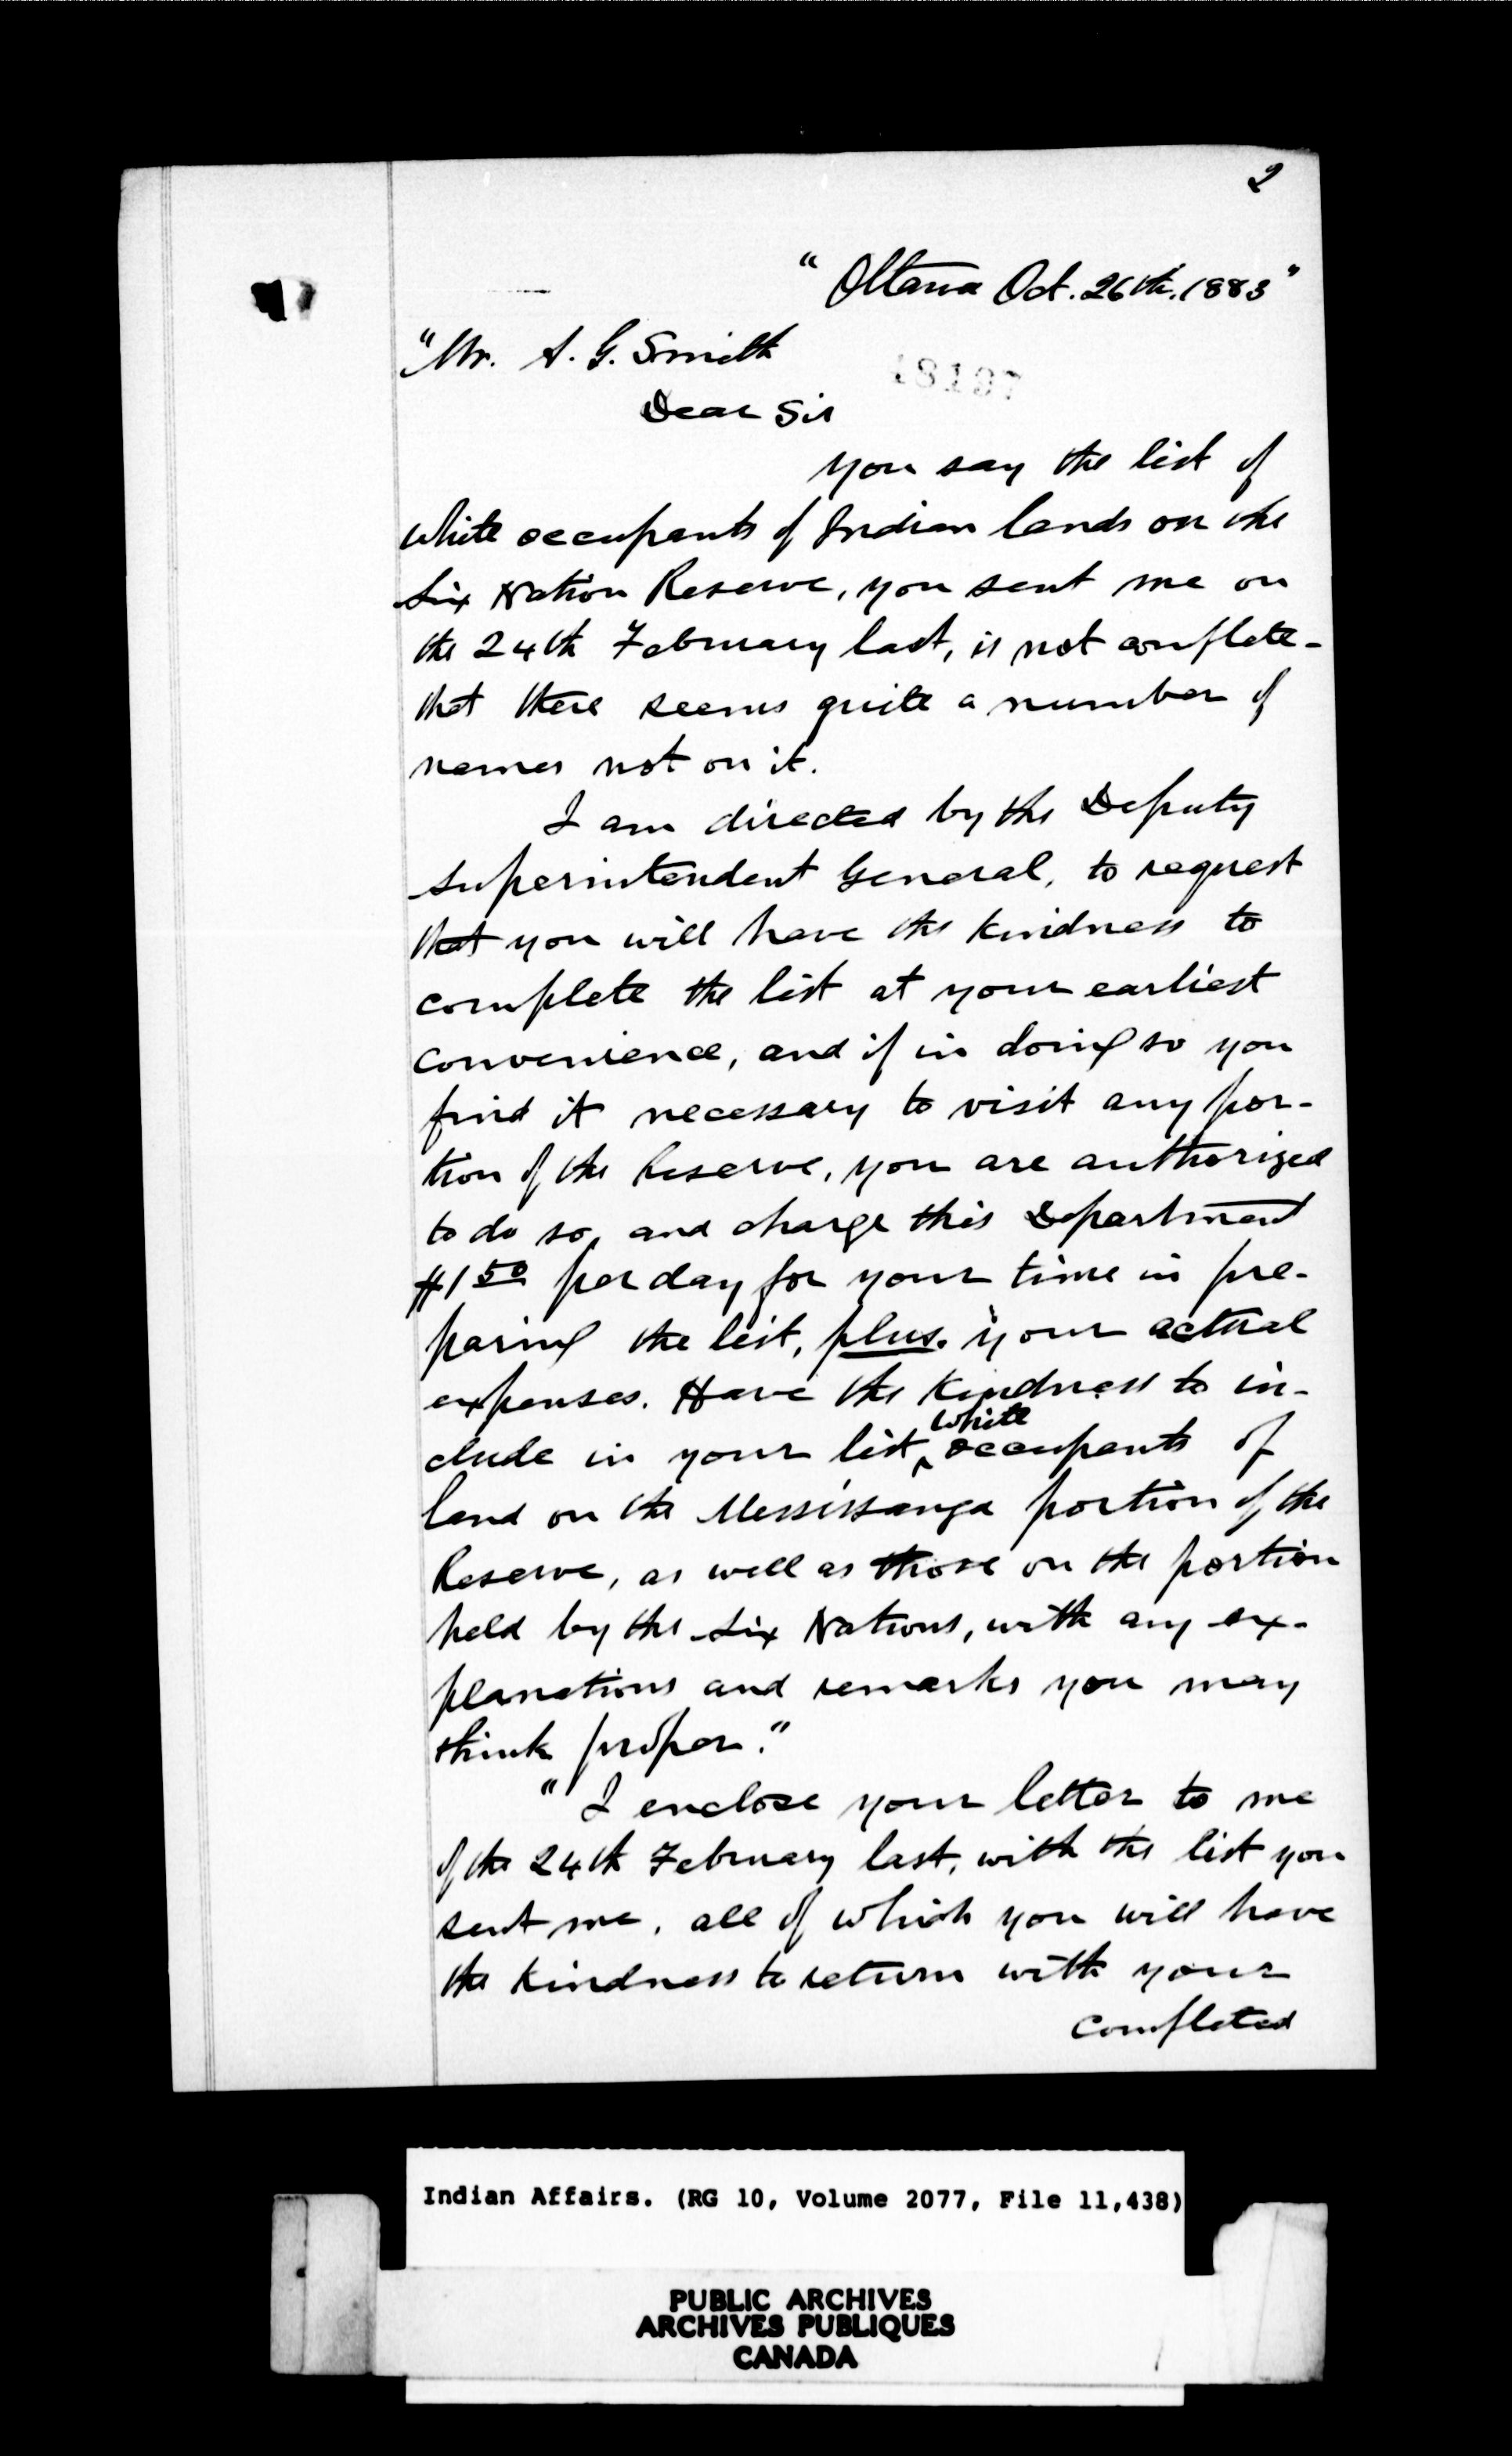 2
"Ottawa Oct. 26th. 1883"
"Mr. A. G. Smith
18197
Dear Sir
You say the list of
White occupants of Indian lands on the
Six Nation Reserve, you sent me on
the 24th February last, is not complete -
that there seems quite a number of
names not on it.
I am directed by the Deputy
Superintendent General, to request
that you will have the kindness to
complete the list at your earliest
convenience, and if in doing so you
find it necessary to visit any por-
tion of the Reserve, you are authorized
to do so, and charge this Department
$1 50 per day for your time in pre-
paring the list, plus. your actual
expenses. Have the kindness to in-
White
clude in your list, ^ occupants of
land on the Mississanga portion of the
Reserve, as well as those on the portion
held by the Six Nations, with any ex-
planations and remarks you may
think proper."
"I enclose your letter to me
of the 24th February last, with the list you
sent me, all of which you will have
the kindness to return with your
completed
Indian Affairs. (RG 10, Volume 2077, File 11,438)
PUBLIC ARCHIVES
ARCHIVES PUBLIQUES
CANADA